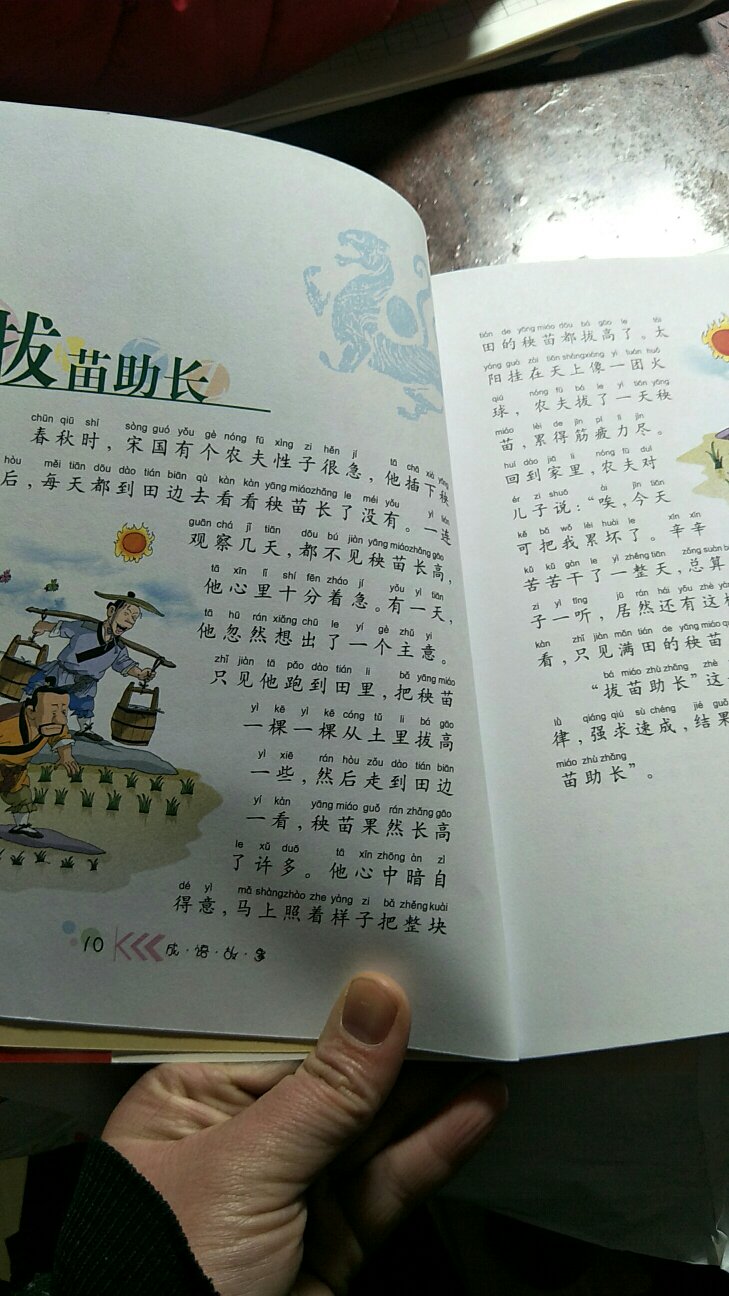 拔苗助长
chūn qiū shí sòng guó yǒu gè nóng fū xìng zi hěn jí tā chā xià yāng
春秋时,宋国有个农夫性子很急,他插下秧
hòu měi tiān dōu dào tián biān qù kàn kàn yāng miáo zhǎng le méi yǒu yì lián
后,每天都到田边去看看秧苗长了没有。一连
guān chá jǐ tiān dōu bú jiàn yāng miáo zhǎng gāo
观察几天,都不见秧苗长高,
tā xīn lǐ shí fēn zháo jí yǒu yì tiān
他心里十分着急。有一天,
tā hū rán xiǎng chū le yí gè zhǔ yi
他忽然想出了一个主意。
zhǐ jiàn tā pǎo dào tián li bǎ yāng miáo
只见他跑到田里,把秧苗
yì kē yì kē cóng tǔ li bá gāo
一棵一棵从土里拔高
yì xiē rán hòu zǒu dào tián biān
一些,然后走到田边
yí kàn yāng miáo guǒ rán zhǎng gāo
一看,秧苗果然长高
le xǔ duō tā xīn zhōng àn zì
了许多。他心中暗自
dé yì mǎ shàng zhào zhe yàng zi bǎ zhěng kuài
得意,马上照着样子把整块
10 成·语·故·事
tián de yāng miáo dōu bá gāo le tài
田的秧苗都拔高了。太
yáng guà zài tiān shàng xiàng yì tuán huǒ
阳挂在天上像一团火
qiú nóng fū bá le yì tiān yāng
球,农夫拔了一天秧
miáo lèi de jīn pí lì jìn
苗,累得筋疲力尽。
huí dào jiā li nóng fū duì
回到家里,农夫对
ér zi shuō āi jīn tiān
儿子说:“唉,今天
kě bǎ wǒ lèi huài le xīn xīn
可把我累坏了。辛辛
kǔ kǔ gàn le yì zhěng tiān zǒng suàn
苦苦干了一整天,总算
zi yì tīng jū rán hái yǒu zhè
子一听,居然还有这
kàn zhǐ jiàn mǎn tián de yāng miáo
看,只见满田的秧苗
bá miáo zhù zhǎng zhè
“拔苗助长”这
lǜ qiáng qiú sù chéng jié guǒ
律,强求速成,结果
miáo zhù zhǎng
苗助长”。